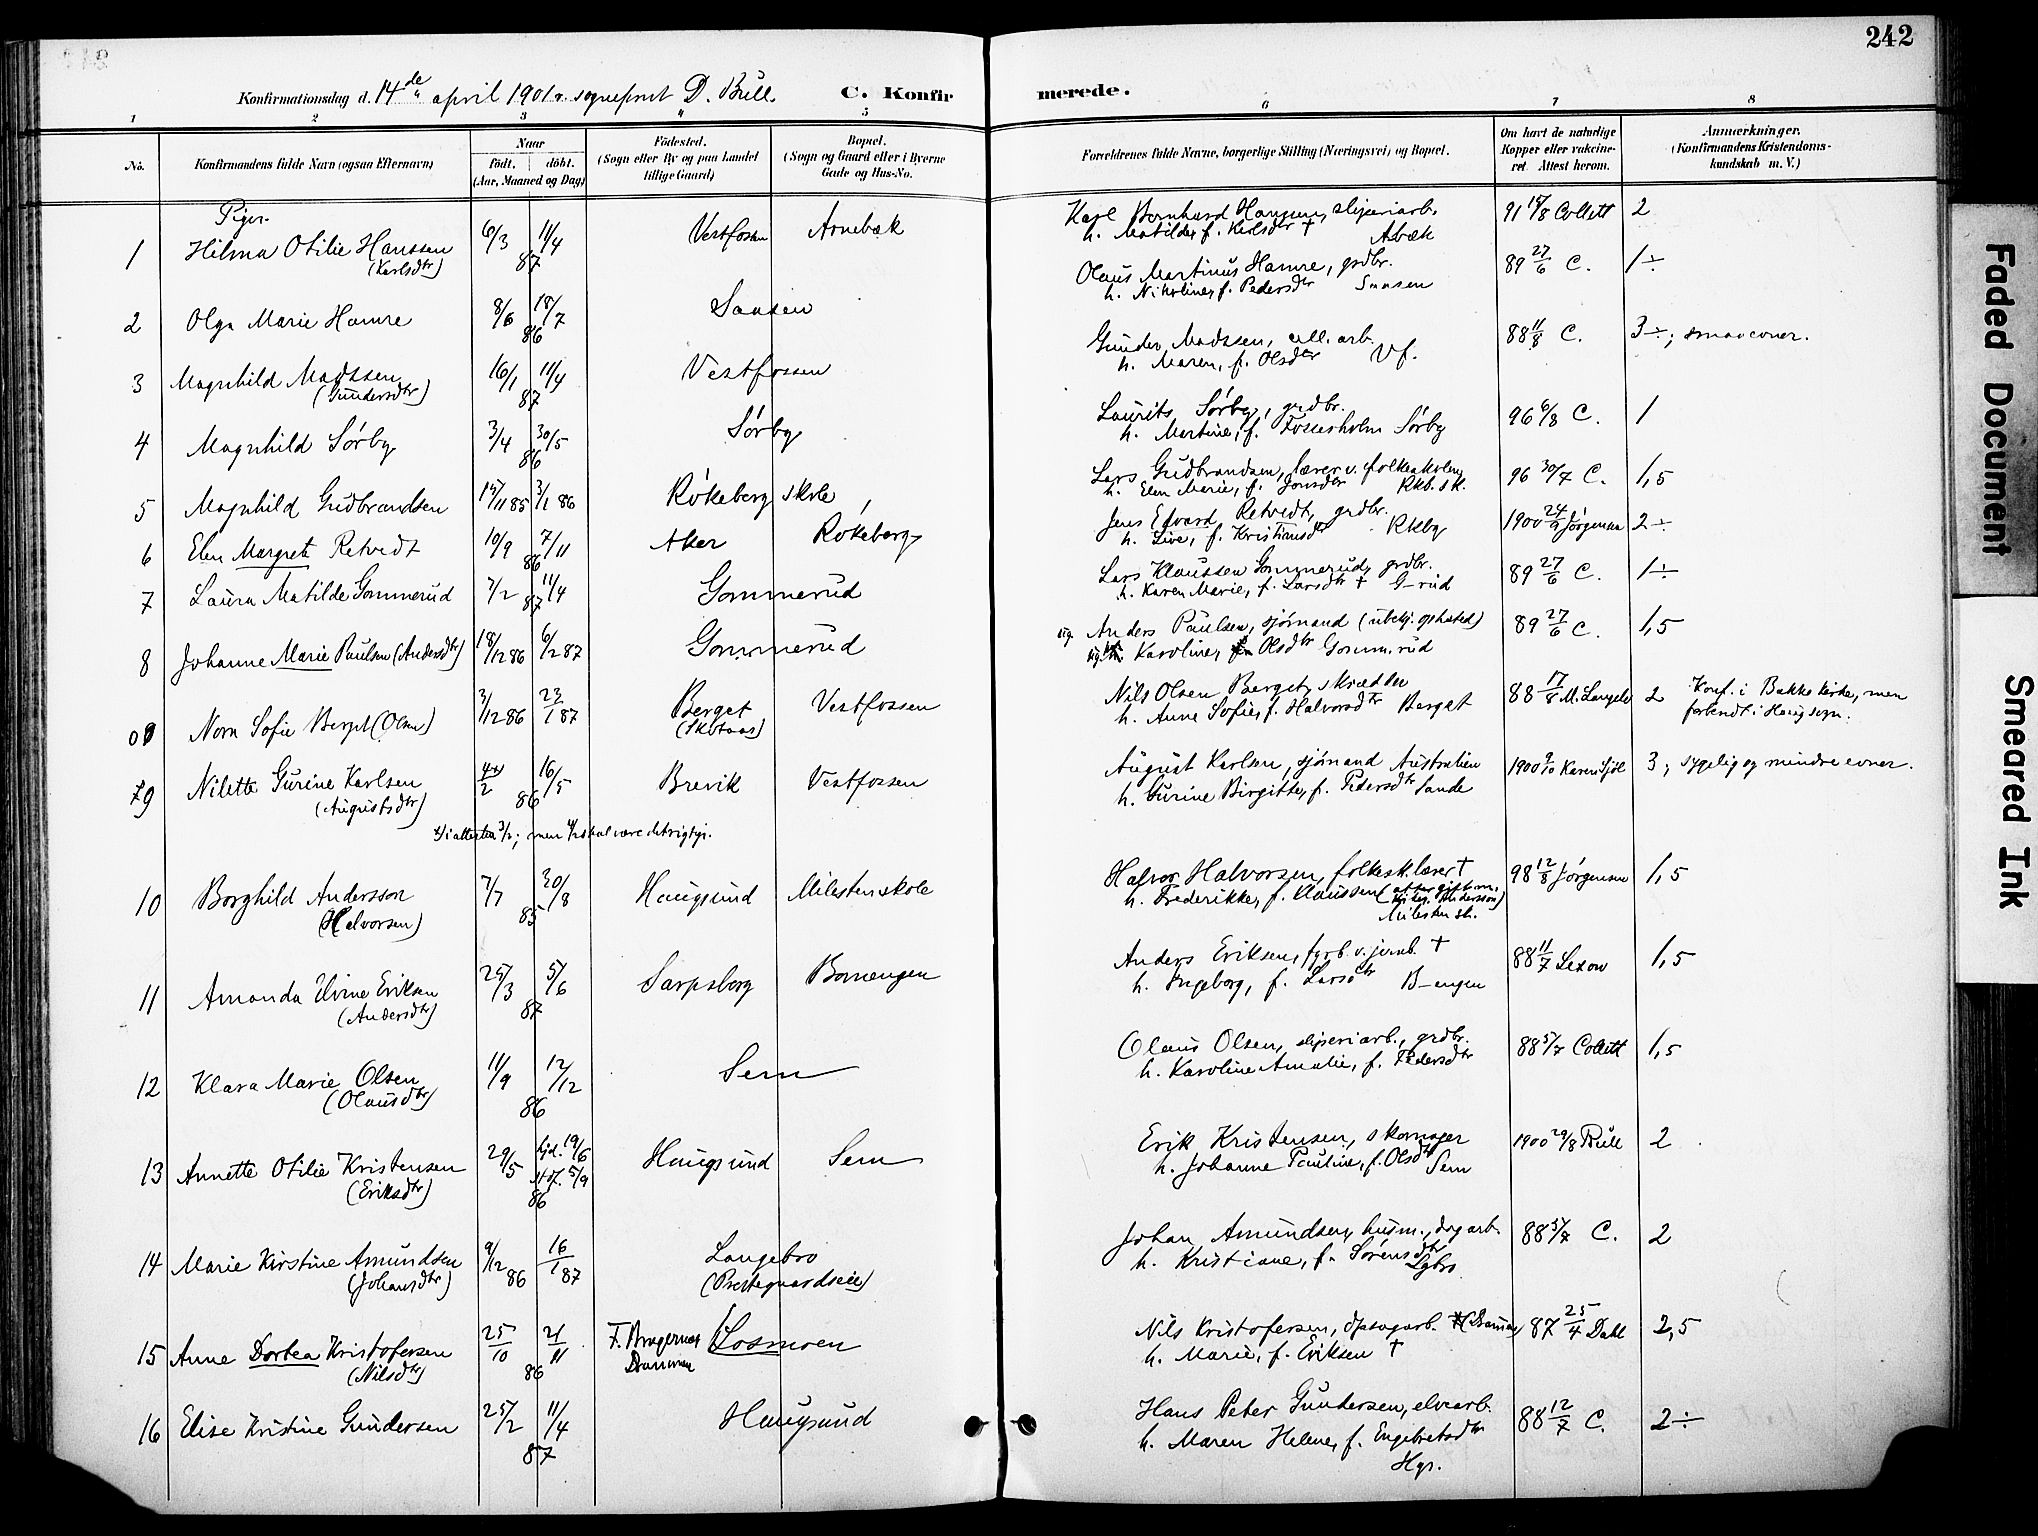 242
Konfirmationsdag d. 14de april 1901 v. sogneprest D. Bull. C. Konfirmerede.
1 2 3 4 5 6 7 8
No. Konfirmandens fulde Navn (ogsaa Efternavn) Naar født. døbt. (Aar, Maaned og Dag) Födested. (Sogn eller By og paa Landet tillige Gaard) Bopæl. (Sogn og Gaard eller i Byerne Gade og Hus-No. Forældrenes fulde Navne, borgerlige Stilling (Næringsvei) og Bopæl. Om havt de naturlige Kopper eller vaccineret. Attest herom. Anmærkninger. (Konfirmandens Kristendomskundskab m. V.)
Piger.
1 Hilma Otilie Hanssen (Karlsdtr) 6/3 11/4 87 Vestfossen Arnebæk Karl Bernhard Hansen, sliperiarb. h. Matilde, f. Karlsdtr † Abæk 91 19/8 Collett 2
2 Olga Marie Hamre 8/6 18/7 86 Saasen Olaus Martinus Hamre, grdbr. h. Nikoline, f. Pedersdtr Saasen 89 27/6 C. 1 ÷
3 Magnhild Madssen (Gundersdtr) 16/1 11/4 87 Vestfossen Gunder Madssen, cell. arb. h. Maren, f. Olsdtr Vf. 88 11/8 C. 3 ÷; smaa evner.
4 Magnhild Sørby 3/4 30/5 86 Sørby Laurits Sørby, grdbr. h. Martine, f. Fossesholm Sørby 96 6/8 C. 1
5 Magnhild Gudbrandsen 15/11 85 3/1 86 Røkeberg skole Lars Gudbrandsen, lærer v. folkeskolen, h. Elen Marie, f. Jonsdtr Rkb. sk. 96 30/7 C. 1,5
6 Elen Margrete Retvedt 10/9 7/11 86 Aker Røkeberg Jens Edvard Retvedt, grdbr. h. Live, f. Kristiansdtr Rkbg 1900 24/9 Jørgensen 2 ÷
7 Laura Matilde Gommerud 7/2 11/4 87 Gommerud Lars Klaussen Gommerud, grdbr. h. Karen Marie, f. Larsdtr † G-rud 89 27/6 C. 1 ÷
8 Johanne Marie Paulsen (Andersdtr) 18/12 86 6/2 87 Gommerud ug. Anders Paulsen, sjømand (ubekj. opholdssted) ug. Karoline, Olsdtr Gommerud 89 27/6 C. 1,5
Nora Sofie Berget (Olsen) 3/12 86 23/1 87 Berget (Skotaas) Vestfossen Nils Olsen Berget, skrædder h. Anne Sofie, f. Halvorsdtr Berget 88 17/8 2 Konf. i Bakke kirke, men forberedt i Haug sogn.
9 Nilette Gurine Karlsen (Augustsdtr) 4 x)/2 16/5 86 Brevik Vestfossen August Karlsen, sjømand Australien h. Gurine Birgitte, f. Pedersdtr Sande 1900 9/10 3; sygelig og mindre evner.
x/ i attesten 3/2; men 4/2 skal være det rigtige.
10 Borghild Andersson (Halvorsen) 7/7 30/8 85 Haugsund Milesten skole Halvor Halvorsen, folkesk.lærer † h. Frederikke, f. Klaussen Milesten sk. 98 12/8 Jørgensen 1,5
11 Amanda Elvine Eriksen (Andersdtr) 25/3 5/6 87 Sarpsborg Bomengen Anders Eriksen, fyrb. v. jernb. † h. Ingeborg, f. Larsdtr B-engen 88 11/7 Lexow 1,5
12 Klara Marie Olsen (Olausdtr) 11/9 12/12 86 Sem Olaus Olsen, sliperiarb., grdbr. h. Karoline Amalie, f. Pedersdtr 88 5/7 Collett 1,5
13 Annette Otilie Kristensen (Eriksdtr) 29/5 hjd. 19/6 stf. 5/9 86 Haugsund Sem Erik Kristensen, skomager h. Johanne Pauline, f. Olsdtr Sem 1900 29/8 Bull 2
14 Marie Kirstine Amundsen (Johansdtr) 9/12 86 16/1 87 Langebro (Prestegaardseie) Johan Amundsen, husm., dagarb. h. Kristiane, f. Sørensdtr Lgbro 88 5/7 C. 2
15 Anne Dortea Kristofersen (Nilsdtr) 25/10 21/11 86 F. Bragernes Drammen Losmoen Nils Kristofersen, dpsagarb. h. Marie, f. Eriksen † 87 25/4 Dahl 2,5
16 Elise Kristine Gundersen 25/2 11/4 87 Haugsund Hans Peter Gundersen, elvearb. h. Maren Helene, f. Engebretsdtr Hgs. 88 12/7 C. 2 ÷
Faded Document
Smeared Ink